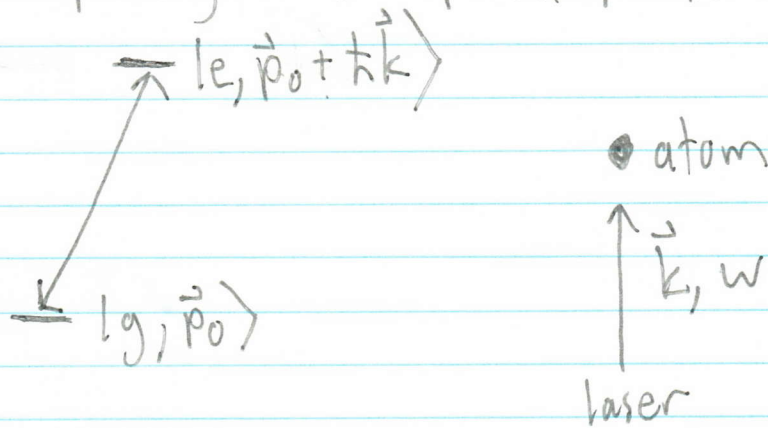 |e, p⃗₀ + ħk⃗⟩
atom
k⃗, w
|g, p⃗₀⟩
laser